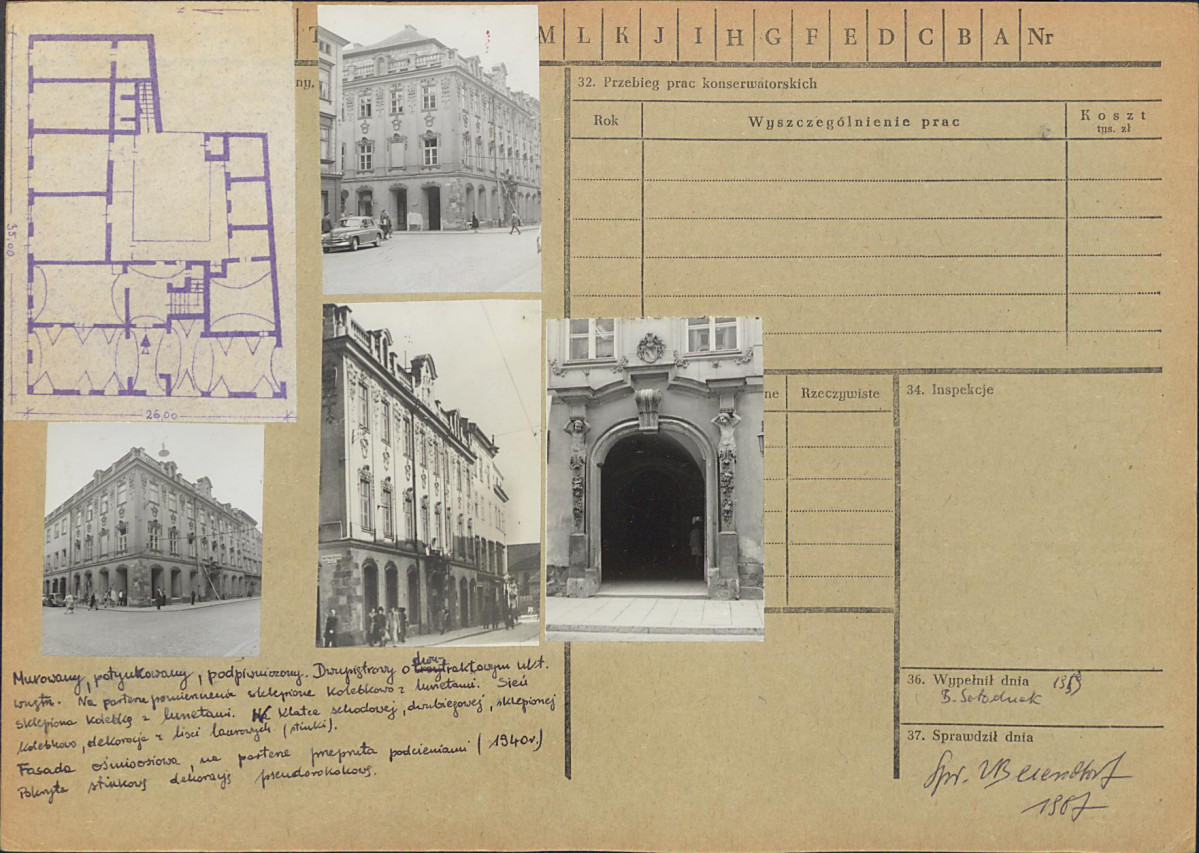 M L K J I H G F E D C B A Nr
ny,
32. Przebieg prac konserwatorskich
Rok
Wyszczególnienie prac
Koszt
tys. zł
35,00
26,00
ne
Rzeczywiste
34. Inspekcje
Murowany, potynkowany, podpiwniczony. Dwupiętrowy o dwutraktowym ukł.
wnętrz. Na parterze pomieszczenia sklepione kolebkowo z lunetami. Sień
sklepiona kolebką z lunetami. Klatce schodowej, dwubiegowej, sklepionej
kolebkowo, dekoracje z liści laurowych (stiuki).
Fasada ośmioosiowa, na parterze przepruta podcieniami (1940r.)
Pokryta stiukową dekoracją pseudorokokową.
36. Wypełnił dnia 1959
37. Sprawdził dnia
Spr.
1967